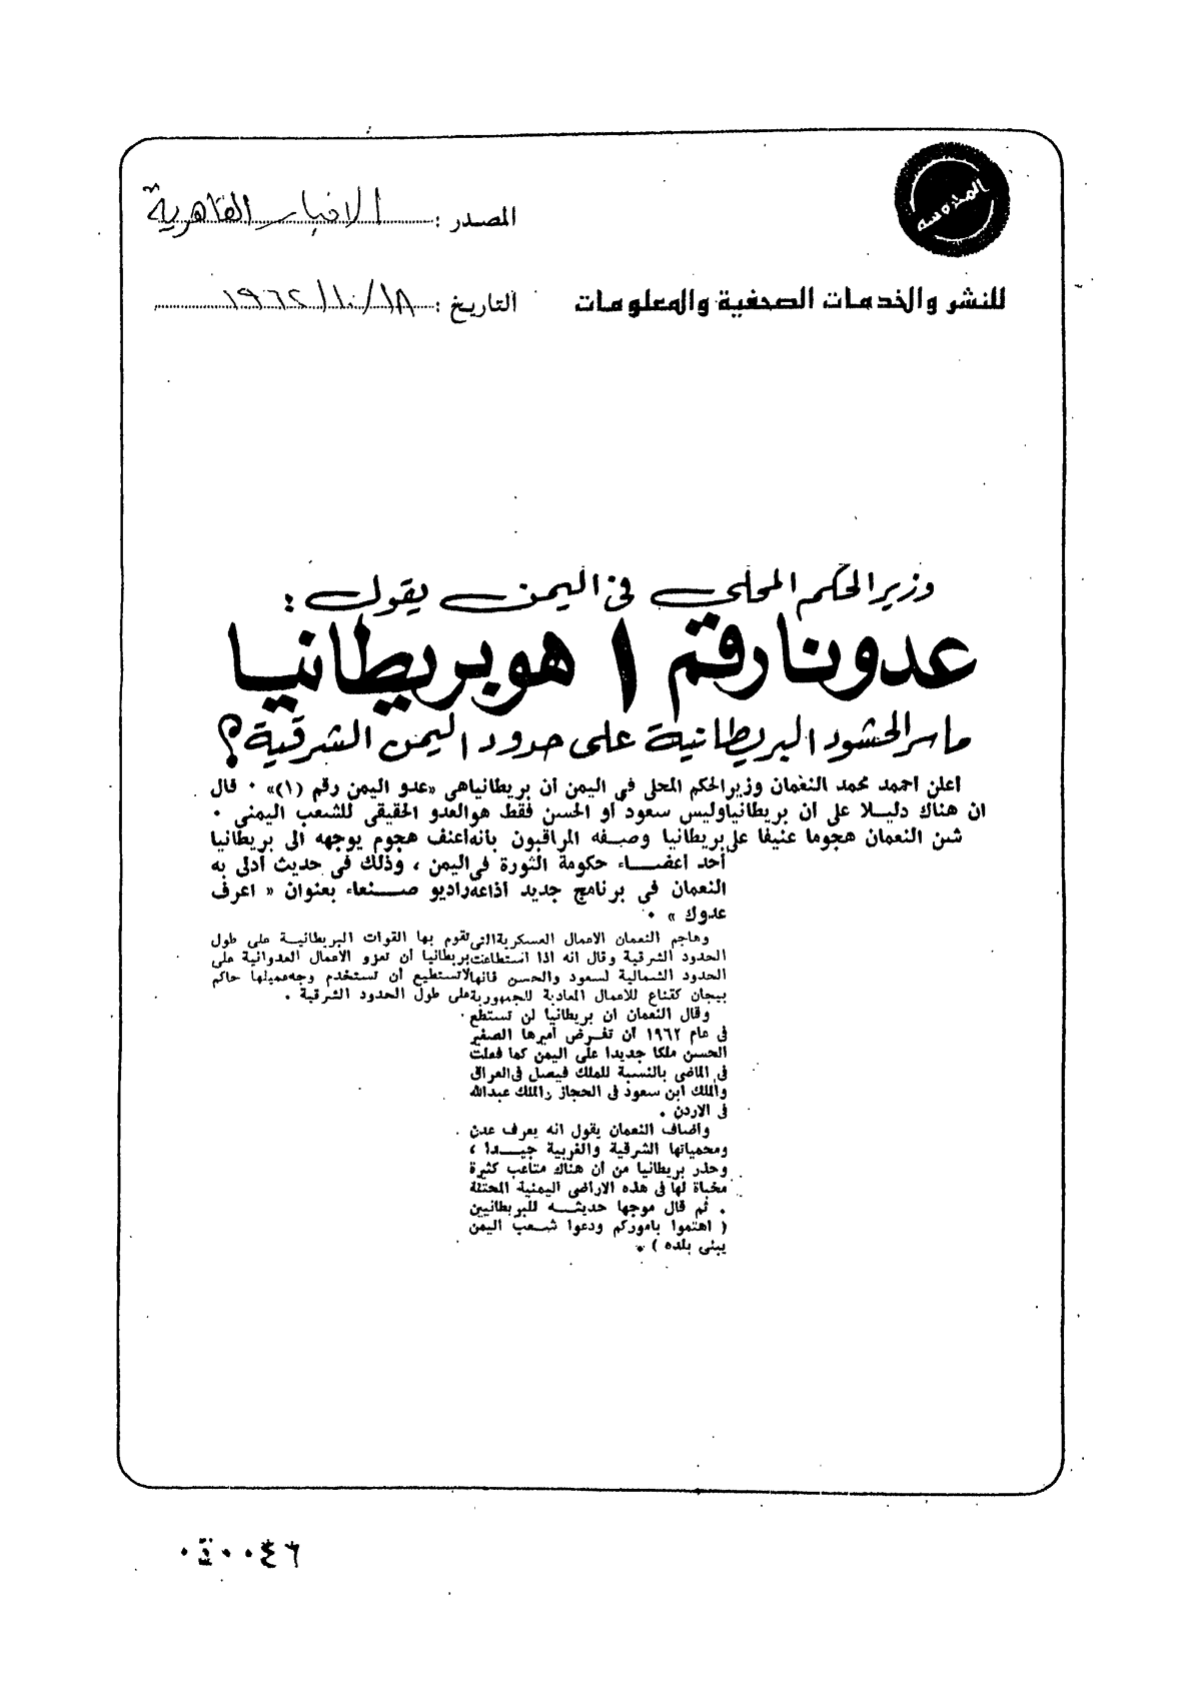 المصدر : الاخبار القاهرية
للنشر والخدمات الصحفية والمعلومات
التاريخ : ١٩٦٢/١٠/١٨
وزير الحكم المحلى فى اليمن يقول :
عدونا رقم ١ هو بريطانيا
ما سر الحشود البريطانية على حدود اليمن الشرقية ؟
اعلن احمد محمد النعمان وزير الحكم المحلى فى اليمن أن بريطانيا هى «عدو اليمن رقم (١)» ٠ قال
ان هناك دليلا على ان بريطانيا وليس سعود أو الحسن فقط هو العدو الحقيقى للشعب اليمنى ٠
شن النعمان هجوما عنيفا على بريطانيا وصفه المراقبون بانه اعنف هجوم يوجهه الى بريطانيا
أحد اعضاء حكومة الثورة فى اليمن ، وذلك فى حديث أدلى به
النعمان فى برنامج جديد اذاعه راديو صنعاء بعنوان « اعرف
عدوك » ٠
وهاجم النعمان الاعمال العسكرية التى تقوم بها القوات البريطانية على طول
الحدود الشرقية وقال انه اذا استطاعت بريطانيا أن تعزو الاعمال العدوانية على
الحدود الشمالية لسعود والحسن فانها لا تستطيع أن تستخدم وجه عميلها حاكم
بيجان كقناع للاعمال المعادية للجمهورية على طول الحدود الشرقية .
وقال النعمان ان بريطانيا لن تستطع
فى عام ١٩٦٢ أن تفرض أميرها الصغير
الحسن ملكا جديدا على اليمن كما فعلت
فى الماضى بالنسبة للملك فيصل فى العراق
والملك ابن سعود فى الحجاز والملك عبدالله
فى الاردن .
واضاف النعمان يقول انه يعرف عدن
ومحمياتها الشرقية والغربية جيدا ،
وحذر بريطانيا من أن هناك متاعب كثيرة
مخبأة لها فى هذه الاراضى اليمنية المحتلة
. ثم قال موجها حديثه للبريطانيين
( اهتموا باموركم ودعوا شعب اليمن
يبنى بلده ) ٠